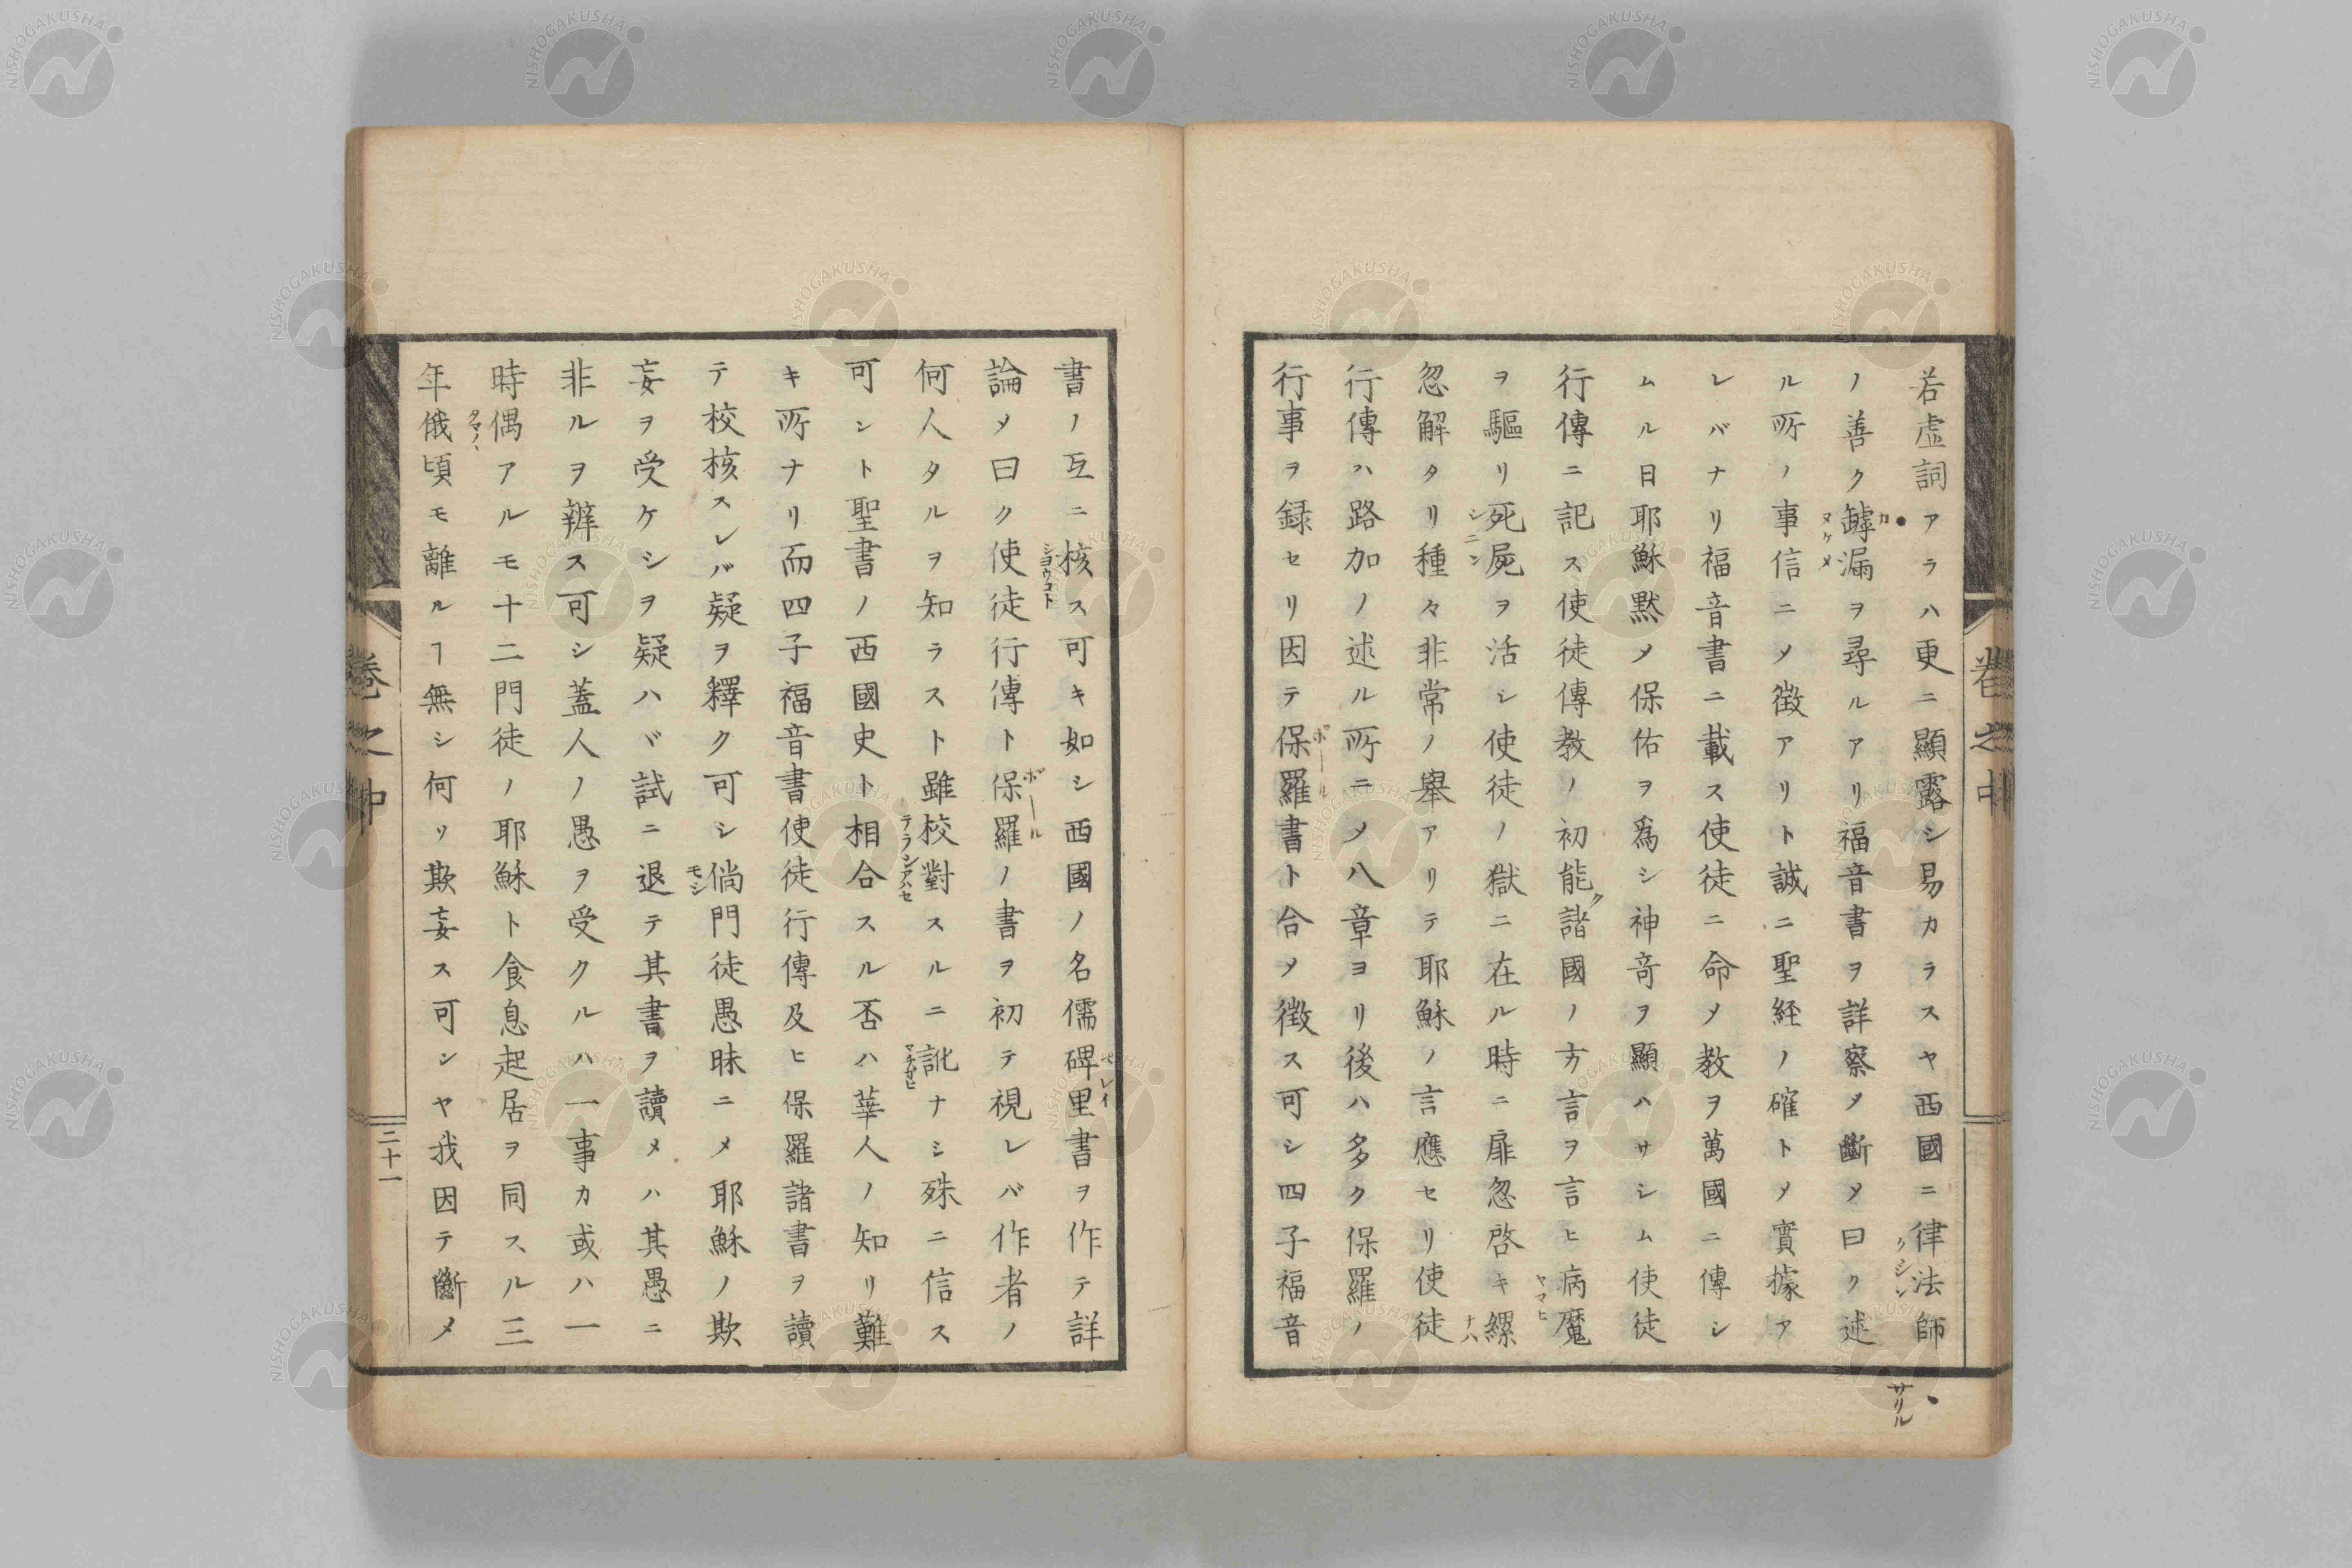 若虚詞アラハ更ニ顯露シ易カラスヤ西國ニ律法師
ノ善ク罅漏ヲ尋ルアリ福音書ヲ詳察メ斷メ曰ク述
ル所ノ事信ニメ徴アリト誠ニ聖経ノ確トメ實據ア
レバナリ福音書ニ載ス使徒ニ命メ教ヲ萬國ニ傳シ
ムル日耶穌黙メ保佑ヲ爲シ神竒ヲ顯ハサシム使徒
行傳ニ記ス使徒傳教ノ初能諸國ノ方言ヲ言ヒ病魔
ヲ驅リ死屍ヲ活シ使徒ノ獄ニ在ル時ニ扉忽啓キ縲
忽解タリ種々非常ノ舉アリテ耶穌ノ言應セリ使徒
行傳ハ路加ノ述ル所ニメ八章ヨリ後ハ多ク保羅ノ
行事ヲ録セリ因テ保羅書ト合メ徴ス可シ四子福音
カ
ヌケメ
クシン
サリル
ク
ヤマヒ
シニン
ナハ
ボール
卷之中
書ノ互ニ核ス可キ如シ西國ノ名儒碑里書ヲ作テ詳
論メ曰ク使徒行傳ト保羅ノ書ヲ初テ視レバ作者ノ
何人タルヲ知ラスト雖校對スルニ訛ナシ殊ニ信ス
可シト聖書ノ西國史ト相合スル否ハ華人ノ知リ難
キ所ナリ而四子福音書使徒行傳及ヒ保羅諸書ヲ讀
テ校核スレバ疑ヲ釋ク可シ倘門徒愚昧ニメ耶穌ノ欺
妄ヲ受ケシヲ疑ハヾ試ニ退テ其書ヲ讀メハ其愚ニ
非ルヲ辨ス可シ蓋人ノ愚ヲ受クルハ一事カ或ハ一
時偶アルモ十二門徒ノ耶穌ト食息起居ヲ同スル三
年俄頃モ離ルヿ無シ何ソ欺妄ス可シヤ我因テ斷メ
シヨウコト
ペレイ
ボール
テラシアハセ
マチガヒ
モシ
タマ〱
卷之中
二十一